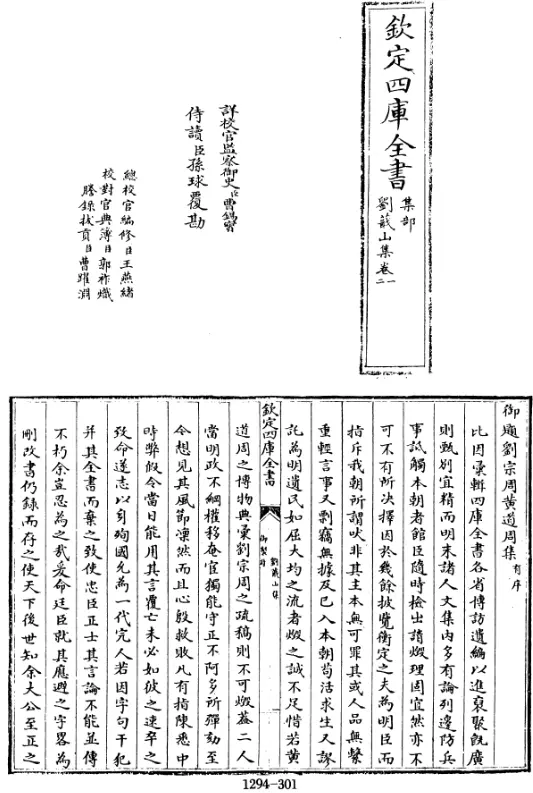 欽定四庫全書
集部
劉蕺山集卷一二
詳校官監察御史臣曹錫寶
侍讀臣孫球覆勘
總校官編修臣王燕緒
校對官典簿臣郭祚熾
謄錄拔貢臣曹躍淵
御題劉宗周黃道周集有序
比因彙輯四庫全書各省博訪遺編以進裒聚旣廣
則甄別宜精而明末諸人文集內多有論列邊防兵
事詆觸本朝者館臣隨時檢出請燬理固宜然亦不
可不有所決擇因於幾餘披覽衡定之夫為明臣而
指斥我朝所謂吠非其主本無可罪其或人品無繫
重輕言事又剽竊無據及已入本朝茍活求生又謬
託為明遺民如屈大均之流者燬之誠不足惜若黃
欽定四庫全書
劉蕺山集
御製詩
道周之博物典彙劉宗周之疏稿則不可燬蓋二人
當明政不綱權移奄宦獨能守正不阿多所彈劾至
今想見其風節凜然而且心殷救敗凡有指陳悉中
時弊假令當日能用其言覆亡未必如彼之速卒之
致命遂志以身殉國允為一代完人若因字句干犯
并其全書而棄之致使忠臣正士其言論不能並傳
不朽余豈忍為之哉爰命廷臣就其應避之字畧為
刪改書仍錄而存之使天下後世知余大公至正之
1294-301